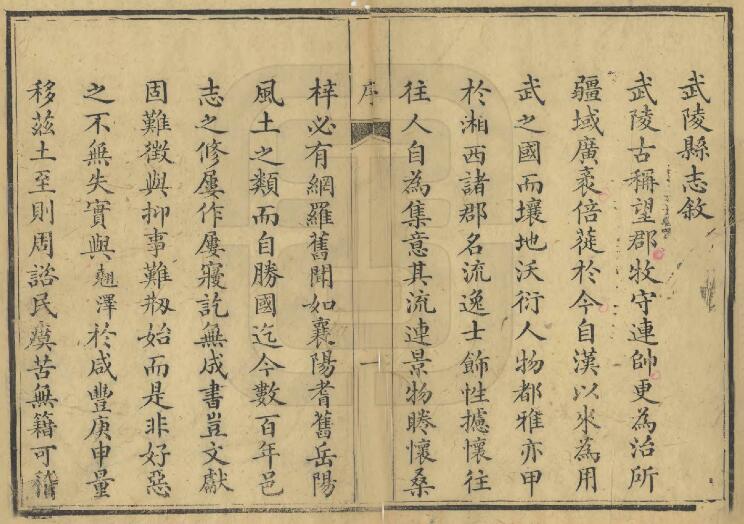 武陵縣志敘
武陵古稱望郡牧守連帥更為治所
疆域廣袤倍蓰於今自漢以來為用
武之國而壤地沃衍人物都雅亦甲
於湘西諸郡名流逸士飾性攄懷往
往人自為集意其流連景物睠懷桑
序
一
梓必有網羅舊聞如襄陽耆舊岳陽
風土之類而自勝國迄今數百年邑
志之修屢作屢寢訖無成書豈文獻
固難徵與抑事難刱始而是非好惡
之不無失實與翹澤於咸豐庚申量
移茲土至則周諮民瘼苦無籍可稽